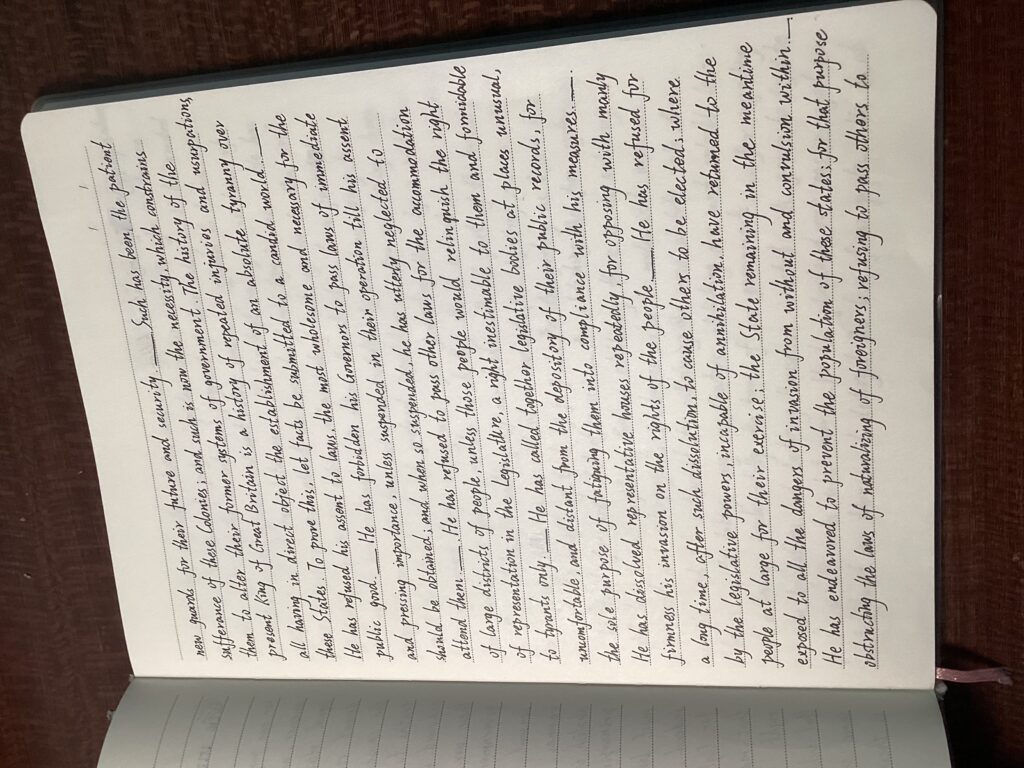 new guards for their future and security. —— Such has been the patient
sufferance of these Colonies; and such is now the necessity which constrains
them to alter their former systems of government. The history of the
present King of Great Britain is a history of repeated injuries and usurpations
all having in direct object the establishment of an absolute tyranny over
these States. To prove this, let facts be submitted to a candid world. ——
He has refused his assent to laws, the most wholesome and necessary for the
public good. —— He has forbidden his Governors to pass laws of immediate
and pressing importance, unless suspended in their operation till his assent
should be obtained, and when so suspended, he has utterly neglected to
attend them. —— He has refused to pass other laws for the accommodation
of large districts of people, unless those people would relinquish the right
of representation in the legislature, a right inestimable to them and formidable
to tyrants only. —— He has called together legislative bodies at places unusual,
uncomfortable and distant from the depository of their public records, for
the sole purpose of fatiguing them into compliance with his measures. ——
He has dissolved representative houses repeatedly, for opposing with manly
firmness his invasion on the rights of the people. —— He has refused for
a long time, after such dissolution, to cause others to be elected; where
by the legislative powers, incapable of annihilation, have returned to the
people at large for their exercise; the State remaining in the meantime
exposed to all the dangers of invasion from without and convulsion within. ——
He has endeavored to prevent the population of these states; for that purpose
obstructing the laws of naturalizing of foreigners; refusing to pass others to